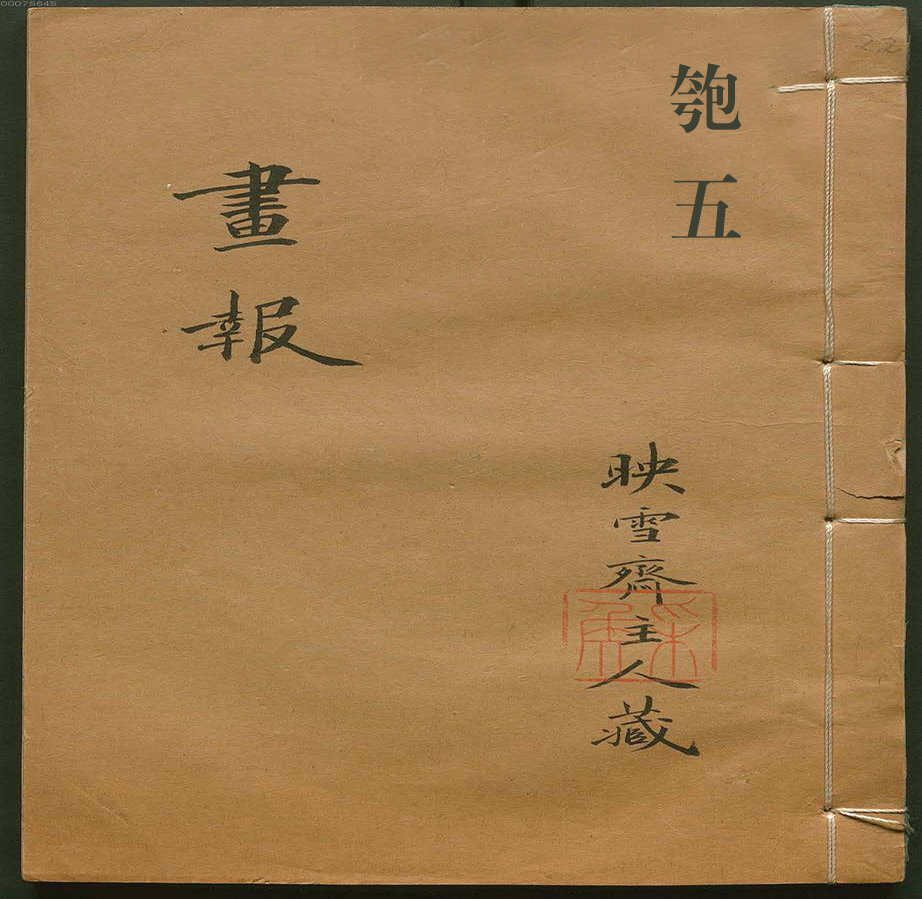 00075645
匏五
畫報
映雪齋主人藏